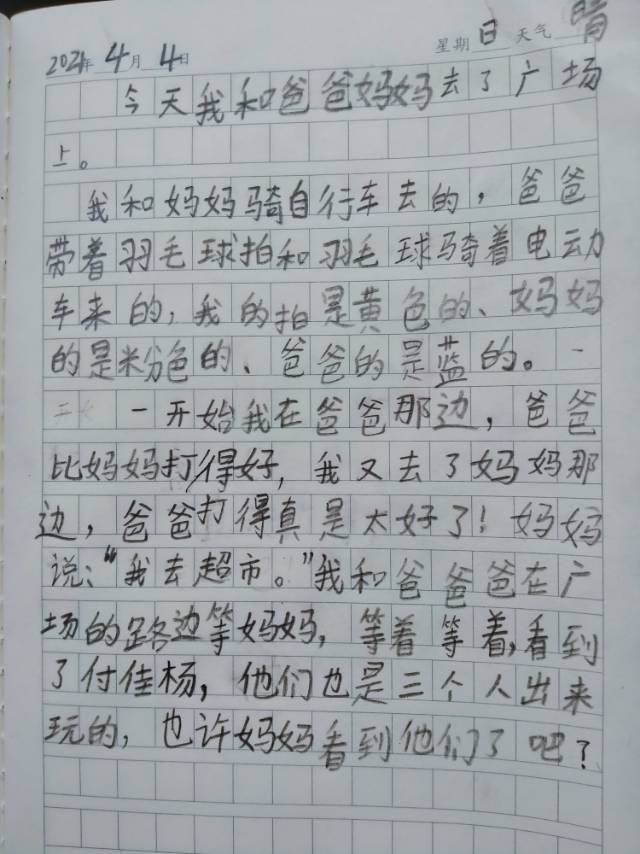 2021年 4月 4日 星期日 天气 晴
今天我和爸爸妈妈去了广场
上。
我和妈妈骑自行车去的，爸爸
带着羽毛球拍和羽毛球骑着电动
车来的，我的拍是黄色的、妈妈
的是粉色的、爸爸的是蓝的。
一开始我在爸爸那边，爸爸
比妈妈打得好，我又去了妈妈那
边，爸爸打得真是太好了！妈妈
说：“我去超市。”我和爸爸爸在广
场的路边等妈妈，等着等着，看到
了付佳杨，他们也是三个人出来
玩的，也许妈妈看到他们了吧？